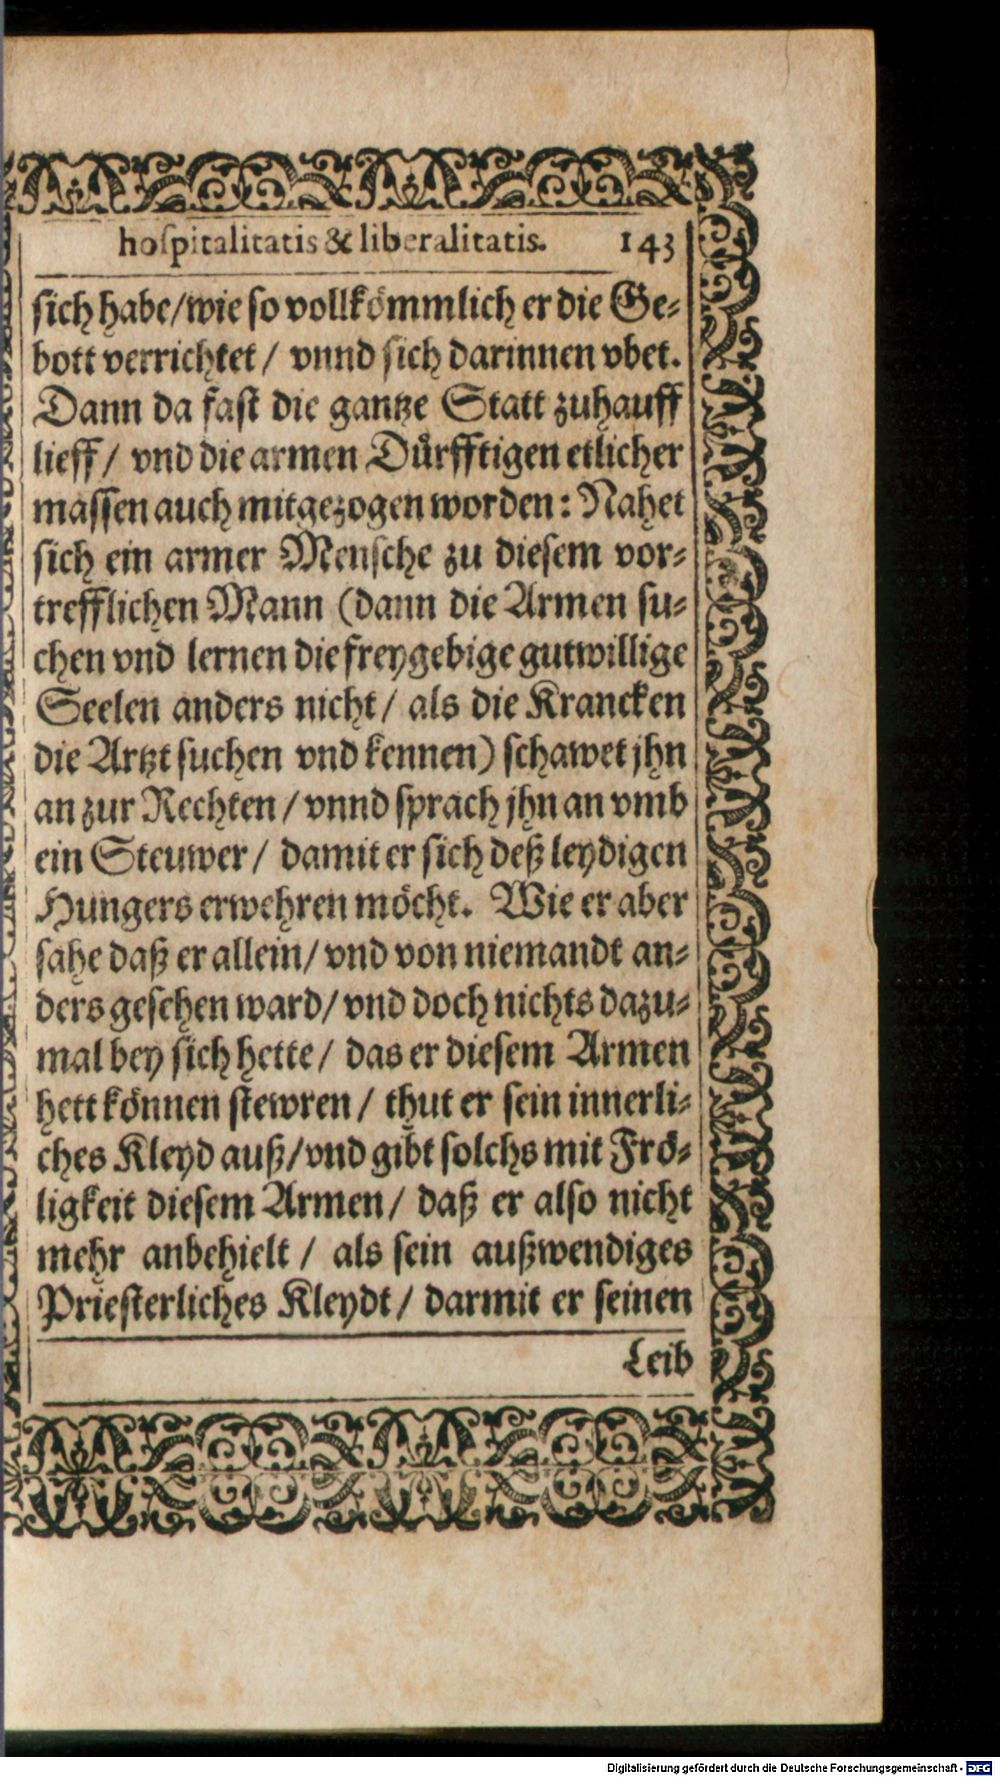 hospitalitatis & liberalitatis. 143
sich habe/wie so vollkömmlich er die Ge-
bott verrichtet/ vnnd sich darinnen vbet.
Dann da fast die gantze Statt zuhauff
lieff/ vnd die armen Dürfftigen etlicher
massen auch mitgezogen worden: Nahet
sich ein armer Mensche zu diesem vor-
trefflichen Mann (dann die Armen su-
chen vnd lernen die freygebige gutwillige
Seelen anders nicht/ als die Krancken
die Artzt suchen vnd kennen) schawet jhn
an zur Rechten/ vnnd sprach jhn an vmb
ein Steuwer/ damit er sich deß leydigen
Hungers erwehren möcht. Wie er aber
sahe daß er allein/ vnd von niemandt an-
ders gesehen ward/ vnd doch nichts dazu-
mal bey sich hette/ das er diesem Armen
hett können stewren/ thut er sein innerli-
ches Kleyd auß/vnd gibt solchs mit Frö-
ligkeit diesem Armen/ daß er also nicht
mehr anbehielt/ als sein außwendiges
Priesterliches Kleydt/ darmit er seinen
Leib
Digitalisierung gefördert durch die Deutsche Forschungsgemeinschaft - DFG